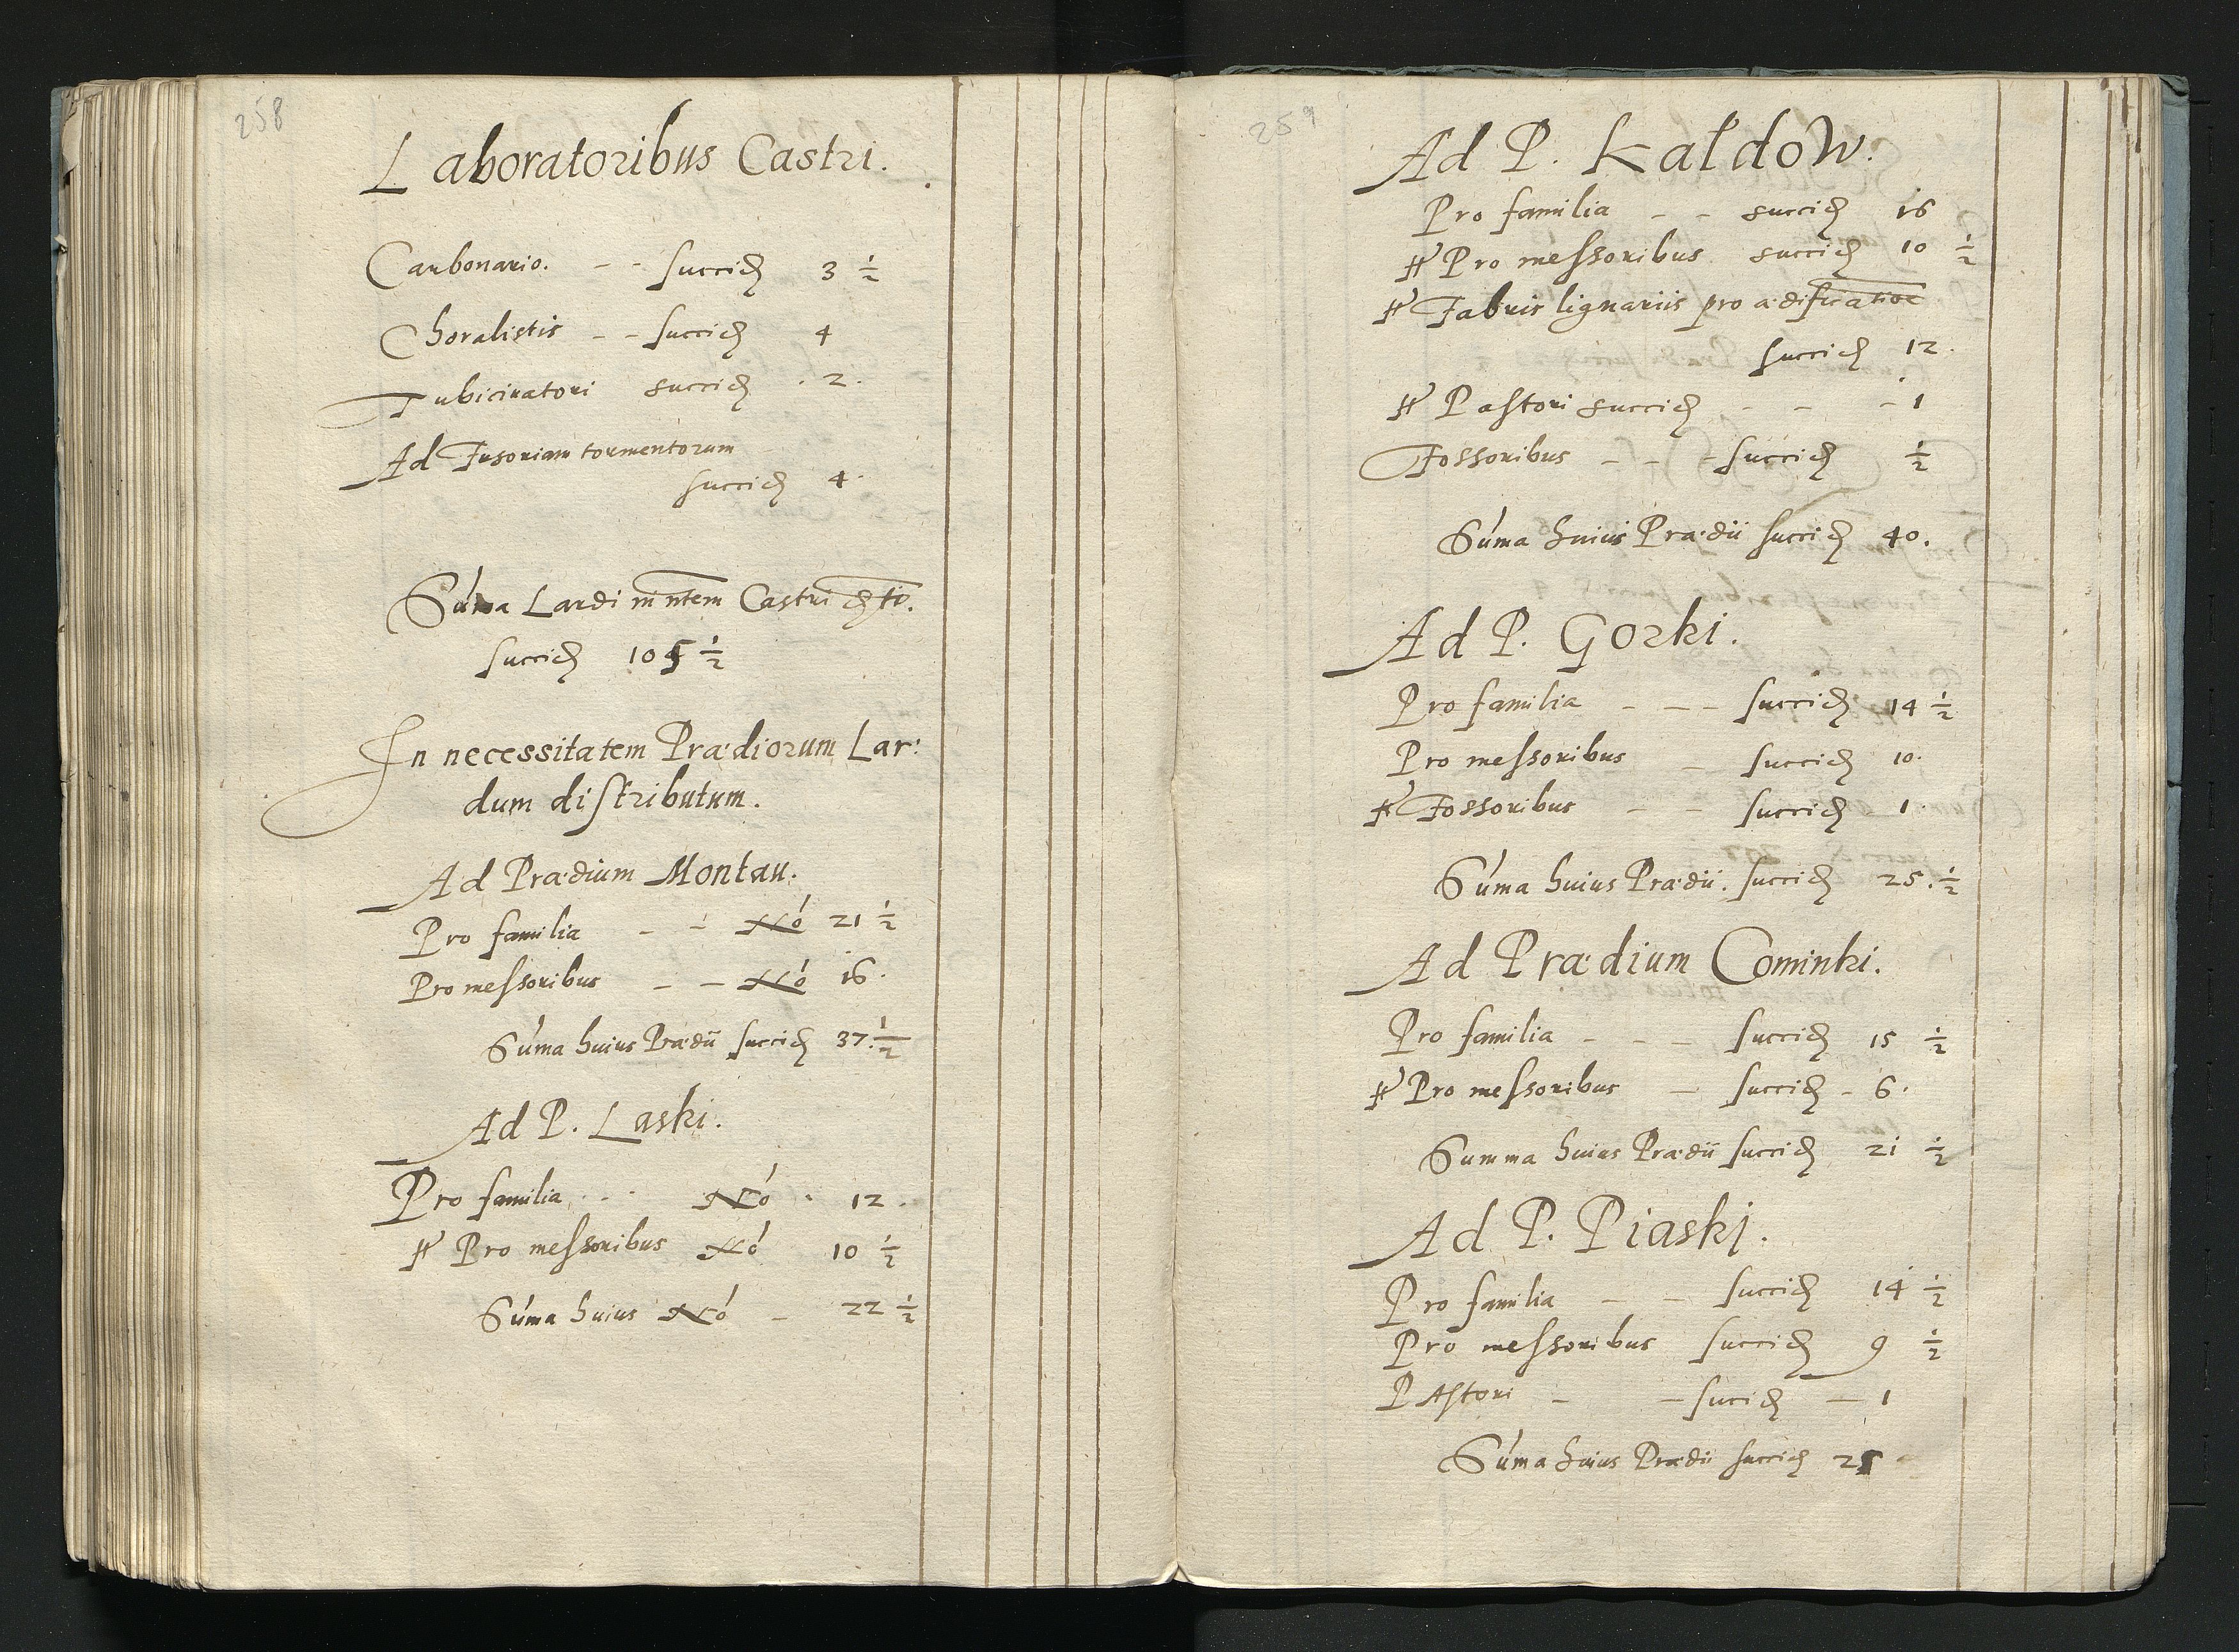 258
Laboratoribus Castri.
Carbonario. - - succid 3 ½
Choralistis - - succid 4
Tubicinatori succid . 2.
Ad Fusoriam tormentorum
succid 4.
Suma Lardi in ntem Castri
succid 105 ½
In necessitatem Prædiorum Lar:
dum distributum.
Ad Prædium Montau.
Pro familia - - No 21 ½
Pro messoribus - - No 16.
Suma huius Prædii succid 37. ½
Ad P. Laski.
Pro familia . - . No . 12.
# Pro messoribus No 10 ½
Suma huius No - 22 ½
259
Ad P. Kałdow.
Pro familia - - succid 16
# Pro messoribus succid 10 ½
# Fabris lignariis pro ædificatioe
succid 12.
# Pastori succid - - - 1
Fossoribus - - - succid ½
Suma huius Prædii succid 40.
Ad P. Gorki.
Pro familia - - - succid 14 ½
Pro messoribus - succid 10.
# Fossoribus - - succid 1.
Suma huius Prædii. succid 25. ½
Ad Prædium Cominki.
Pro familia - - - succid 15 ½
# Pro messoribus - succid - 6.
Summa huius Prædii succid 21 ½
Ad P. Piaskj.
Pro familia - - succid 14 ½
Pro messoribus succid 9 ½
PAstori - - sucid - 1
Suma huius Prædii succid 25